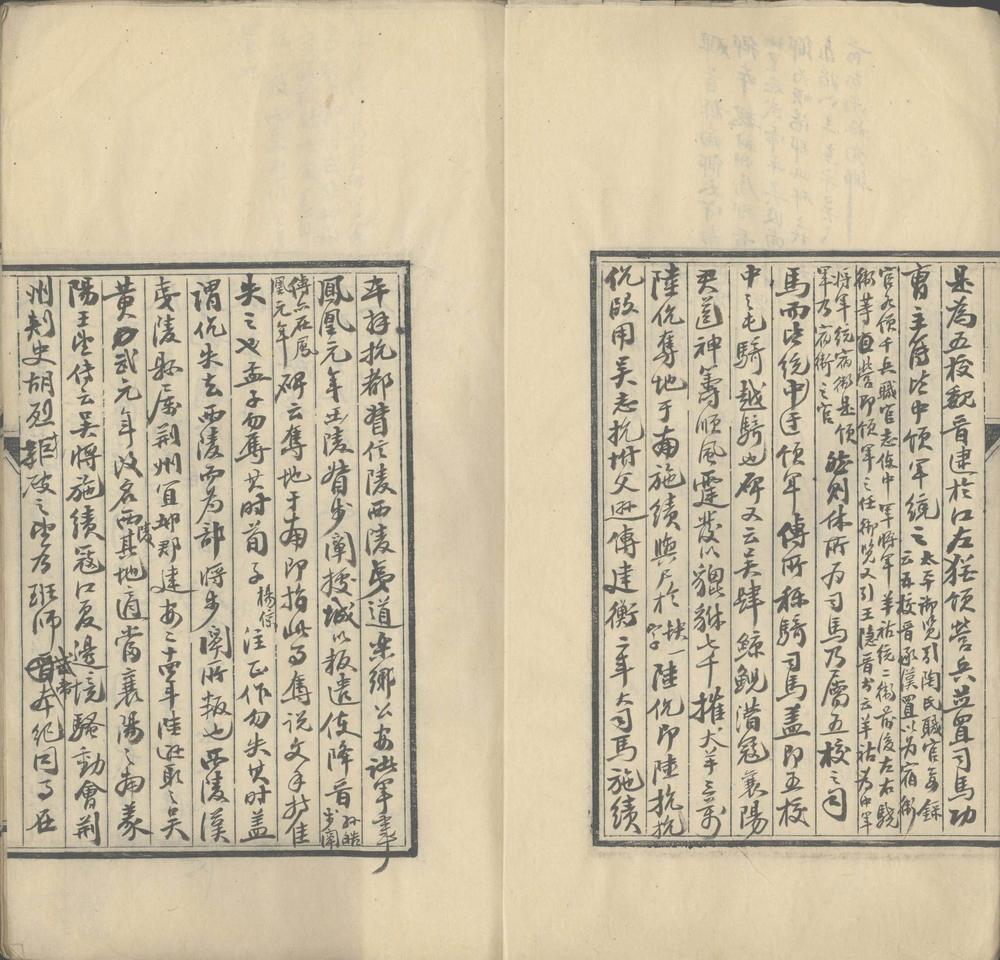 是為五校魏晉逮於江左猶領營兵並置司馬功
曹主簿後省中領軍統之太平御覽引陶氏職官要錄云五校晉承漢置以為宿衛
官各領千兵職官志後中軍將軍羊祜統二衛前後左右驍
衛等營即領軍之任御覽又引王隱晉書云羊祜為中軍
將軍統宿衛是領軍乃宿衛之官然則休所為司馬乃屬五校之司
馬而皆統中護領軍傅所稱騎司馬蓋即五校
中之屯騎越騎也碑又云吳肆鯨鯢潛寇襄陽
君啚神籌順風電發以貔貅七千摧犬羊三萬
陸伉奪地于南施績與尺於缺一字陸伉即陸抗抗
伉叚用吳志抗坿父遜傳建衡二年大司馬施績
卒拜抗都督信陵西陵夷道樂鄉公安諸軍事
鳳凰元年西陵督步闡據城以叛遣使降晉孫皓步闡
傳亦在鳳凰元年碑云奪地于南即指此事奪說文手持隹
失之也孟子勿奪其時荀子楊倞注正作勿失其時蓋
謂伉失去西陵而為部將步闡所叛也西陵漢
夷陵縣屬荊州宜都郡建安二十四年陸遜取之吳
黃武元年改名西陵其地適當襄陽之南義
陽王望傳云吳將施績寇江夏邊境騷動會荊
州刺史胡烈距破之望乃班師武帝本紀同事在